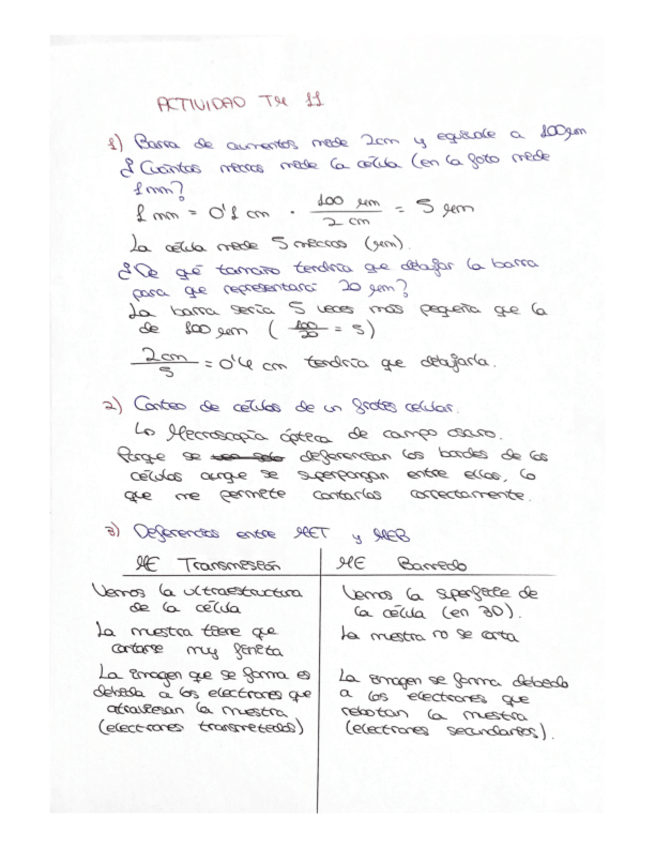 ACTIVIDAD TM 11
1) Barra de aumentos mide 2cm y equivale a 100μm
¿Cuántas micras mide la célula (en la foto mide
1mm?
1 mm = 0'1 cm · 100 μm / 2 cm = 5 μm
La célula mide 5 micras (μm).
¿De qué tamaño tendría que dibujar la barra
para que representará 20 μm?
La barra sería 5 veces más pequeña que la
de 100 μm ( 100/20 = 5)
2cm / 5 = 0'4 cm tendría que dibujarla.
2) Conteo de células de un frotis celular.
↳ Microscopía óptica de campo oscuro.
Porque se diferencian los bordes de las
células aunque se superpongan entre ellas, lo
que me permite contarlas correctamente.
3) Diferencias entre MET y MEB
ME Transmisión
Vemos la ultraestructura
de la célula
La muestra tiene que
cortarse muy finita
La imagen que se forma es
debida a los electrones que
atraviesan la muestra
(electrones transmitidos)
ME Barrido
Vemos la superficie de
la célula (en 3D).
La muestra no se corta
La imagen se forma debido
a los electrones que
rebotan la muestra
(electrones secundarios).